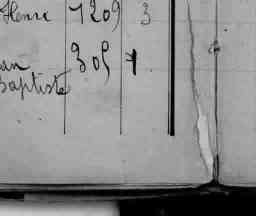 Henri 1209 3
an 309 7
Baptiste